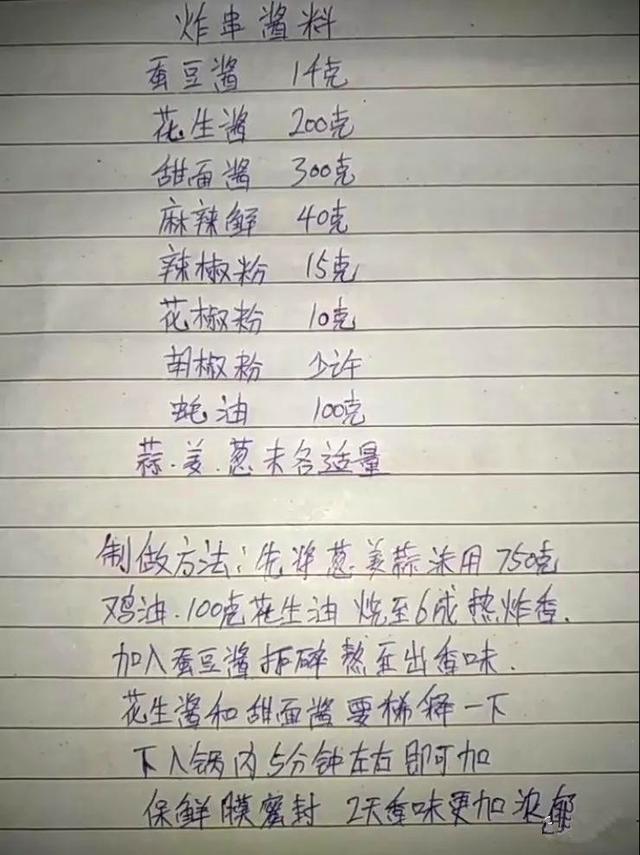 炸串酱料
蚕豆酱 1千克
花生酱 200克
甜面酱 300克
麻辣鲜 40克
辣椒粉 15克
花椒粉 10克
胡椒粉 少许
蚝油 100克
蒜.姜.葱末各适量
制做方法:先将葱姜蒜沫用750克
鸡油.100克花生油 烧至6成热炸香.
加入蚕豆酱 熬至出香味.
花生酱和甜面酱要稀释一下
下入锅内5分钟左右即可加
保鲜膜密封 2天香味更加浓郁